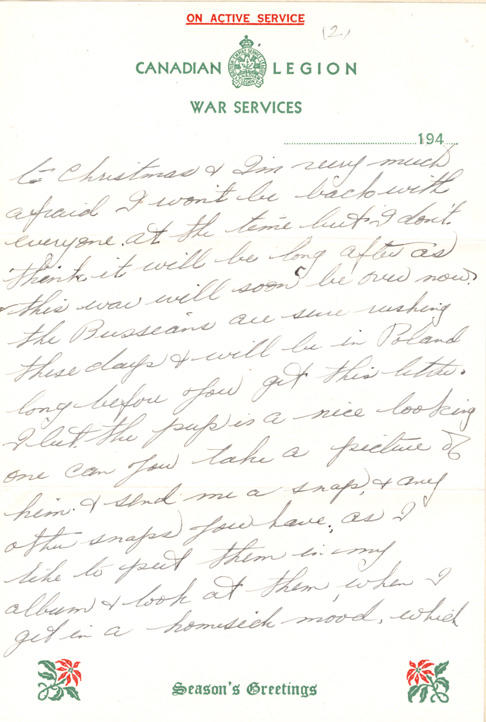 ON ACTIVE SERVICE
(2)
CANADIAN LEGION
WAR SERVICES
194
to Christmas & I'm very much
afraid I won't be back with
everyone at the time but I don't
think it will be long after as
this war will soon be over now.
the Russeans are sure rushing
these days & will be in Poland
long before you get this letter.
I bet the pup is a nice looking
one can you take a picture of
him & send me a snap, & any
other snaps you have, as I
like to put them in my
album & look at them when I
get in a homesick mood, which
Season's Greetings